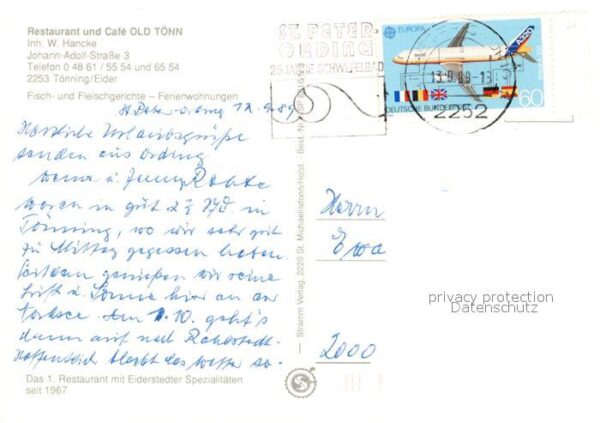 Restaurant und Café OLD TÖNN
Inh. W. Hancke
Johann-Adolf-Straße 3
Telefon 0 48 61 / 55 54 und 65 54
2253 Tönning/Eider
Fisch- und Fleischgerichte – Ferienwohnungen
St. Peter-Ording 12.9.89
Herzliche Urlaubsgrüße
senden aus Ording
waren in gut 2½ Std. in
Tönning, wo wir sehr gut
zu Mittag gegessen haben.
Seitdem genießen wir reine
Luft u. Sonne hier an der
Nordsee. Am 1.10. geht's
dann auf nach
Hoffentlich bleibt das Wetter so.
Das 1. Restaurant mit Eiderstedter Spezialitäten
seit 1967
— Stramm Verlag, 2220 St. Michaelisdonn/Holst. Best. Nr.
ST. PETER-
ORDING
25 JAHRE SCHWEFELBAD
EUROPA
A320
13.9.89-13
DEUTSCHE BUNDESPOST
60
2252
Herrn
2000
privacy protection
Datenschutz